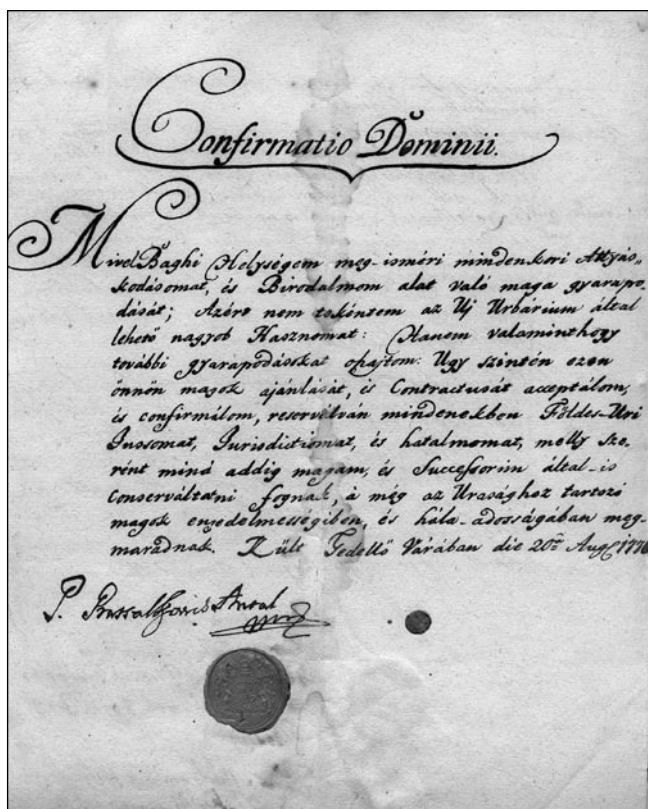 Confirmatio Dominii.
Mivel Baghi Helységem meg-isméri mindenkori Attyás„
kodásomat, és Birodalmom alat való maga gyarapo„
dását; Azért nem tekéntem az Uj Urbárium által
lehető nagyob Hasznomat: Hanem valaminthogy
további gyarapodásokat ohajtom: Ugy szintén ezen
önnön magok ajánlását, és Contractusát acceptálom,
és confirmálom, reserválván mindenekben Földes-Uri
Jussomat, Jurisdictiomat, és hatalmomat, melly sze„
rént mind addig magam, és Successorim által-is
Conserváltatni fognak, à még az Urasághoz tartozó
magok engedelmességiben, és hála-adosságában meg-
maradnak. Költ Gedellő Várában die 20ª Aug
Antal